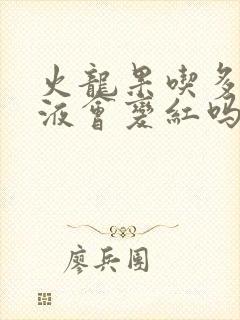 火龍果喫多
液會變紅吗
廖兵團